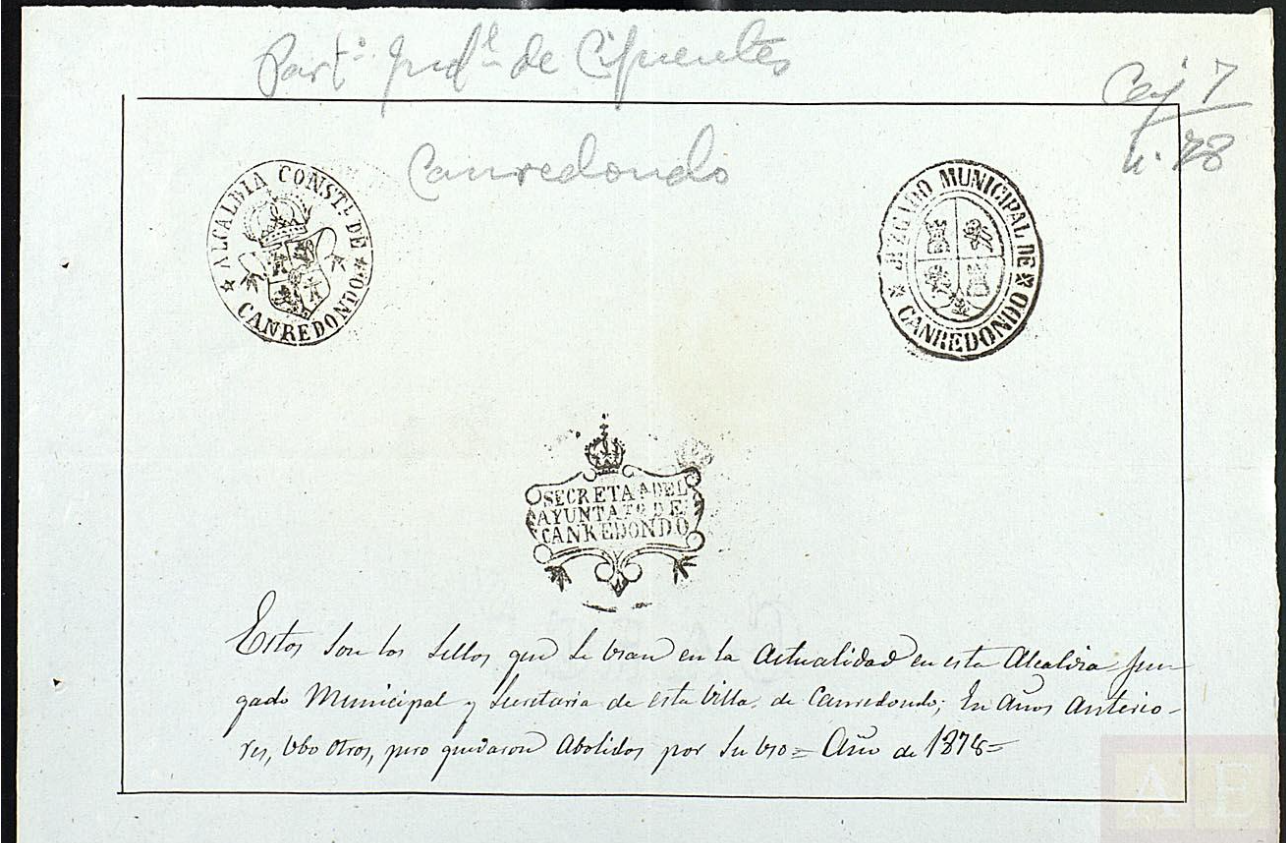 Part.º Jud.l de Cifuentes
Caj 7
n. 28
Canredondo
ALCALDIA CONST.L DE
CANREDONDO
JUZGADO MUNICIPAL DE
CANREDONDO
SECRETA A DEL
AYUNTATO DE
CANREDONDO
Estos son los sellos que se usan en la Actualidad en esta Alcaldia Juz
gado Municipal y Secretaria de esta Villa, de Canredondo; En Años Anterio-
res, Ubo otros, pero quedaron Abolidos por su Uso = Año de 1878=
A E